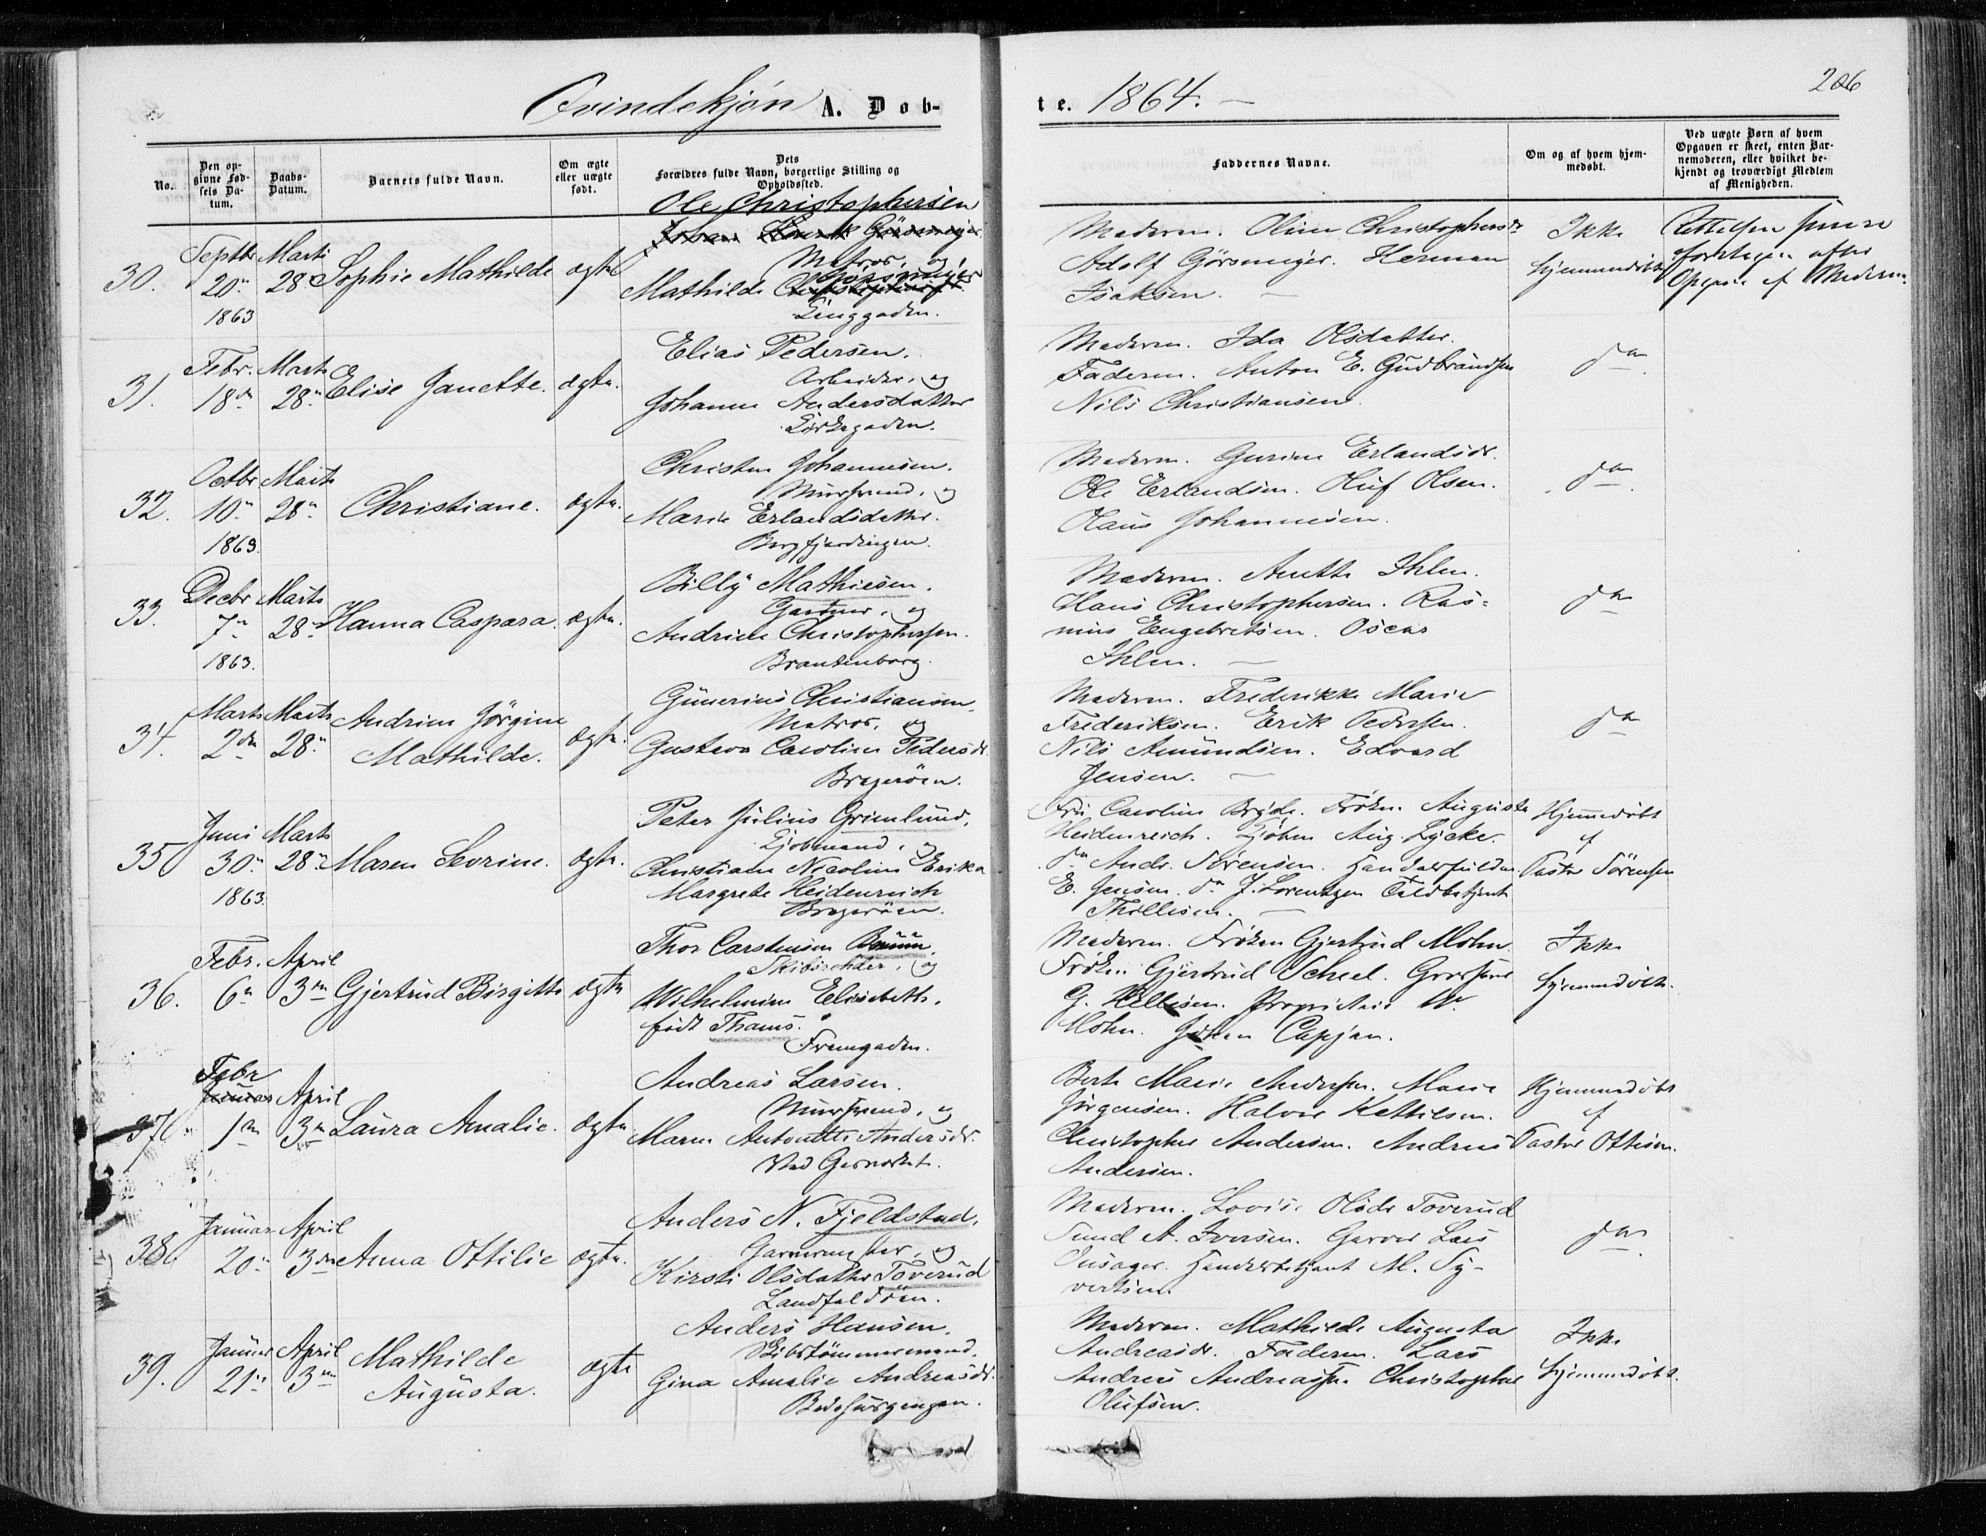 206
Qvindekjøn A. Døb-
te. 1864.
No.
Den op-
givne Fød-
sels Da-
tum.
Daabs-
Datum.
Barnets fulde Navn.
Om ægte
eller uægte
født.
Dets
Forældres fulde Navn, borgerlige Stilling og
Opholdssted.
Faddernes Navne.
Om og af hvem hjem-
medøbt.
Ved uægte Børn af hvem
Opgaven er skeet, enten Bar-
nemoderen, eller hvilket be-
kjendt og troværdigt Medlem
af Menigheden.
30.
Septbr
20n
1863
Marts
28n
Sophie Mathilde
ægte
Ole Christophersen
Matros, og
Mathilde
Moderen. Oline Christophersdr
Adolf Görsmeyer. Herman
Isaksen.
Ikke
hjemmedöbt
Rettelsen
foretagen efter
Opgave af Moderen.
31.
Febr.
18de
Marts
28n
Elise Janette.
ægte.
Elias Pedersen.
Arbeider, og
Johanne Andersdatter
Moderen. Ida Olsdatter.
Faderen. Anton E. Gudbrandsen
Nils Christiansen.
do
32.
Octbr
10n
1863.
Marts
28n
Christiane.
ægte.
Christen Johannesen.
Mursvend, og
Marie Erlandsdatter.
Bergfjerdingen.
Moderen. Gurine Erlandsdr.
Ole Erlandsen. Oluf Olsen.
Hans Johannesen.
do
33.
Decbr
7n
1863.
Marts
28n
Hanna Caspara.
ægte.
Billy Mathiesen.
Gartner, og
Andrine Christophersen.
Brantenborg.
Moderen. Anette Ihlen.
Hans Christophersen. Ras-
mus Engebretsen. Oscar
Ihlen.
do
34.
Marts
2den
Marts
28n
Andrine Jörgine
Mathilde.
ægte.
Gunerius Christiansen.
Matros, og
Gustava Caroline Pedersdr.
Bragerøen.
Moderen. Frederikke Marie
Frederiksen. Erik Pedersen.
Nils Amundsen. Edvard
Jensen.
do
35
Juni
30n
1863.
Marts
28n
Maren Sevrine.
ægte.
Peter Julius Grimlund,
Kjøbmand, og
Christiane Nicoline Erika
Margrete Heidenreich
Bragerøen.
Fru Caroline Bryde. Frøken Augusta
Heidenreich. Kjøbm Aug. Lycke.
do Andr. Sørensen. Handelsfuldm.
E. Jensen. do J. Lorentzen Toldbetjent
Thollesen.
Hjemmedöbt
af
Pastor Sörensen
36.
Febr.
6n
April
3die
Gjertrud Birgitte
ægte
Thor Carstensen Bruun,
Skibsrheder, og
Wilhelmine Elisabeth,
født Thams.
Fremgaden.
Moderen. Frøken Gjertrud Mohn.
Frøken Gjertrud Scheel. Grosserer
G. Kellesen. Proprietair W.
Mohn. Johan Capjon.
Ikke
hjemmedöbt.
37
Febr
1n
April
3n
Laura Amalie.
ægte
Andreas Larsen.
Mursvend, og
Maren Antonette Andersdr.
Ved Gasværket.
Berte Marie Andersen. Maria
Jørgensen. Halvor Kettilsen.
Christopher Andersen. Andreas
Andersen.
Hjemmedöbt
af
Pastor Ottesen.
38
Januar
20n
April
3die
Anna Ottilie
ægte.
Anders N. Fjeldstad,
Garvermester, og
Kirsti Olsdatter Toverud
Landfaldöen.
Moderen. Lovise Olsdr Toverud
Svend A. Iversen. Garver Lars
Handelsbetjent M. Sy-
vertsen.
do
39.
Januar
21n
April
3die
Mathilde
Augusta.
ægte
Anders Hansen.
Skibstømmermand.
Gina Amalie Andreasdr.
Moderen. Mathilde Augusta
Andreasdr. Faderen. Lars
Andreas Andreassen. Christopher
Olufsen.
Ikke
hjemmedöbt.